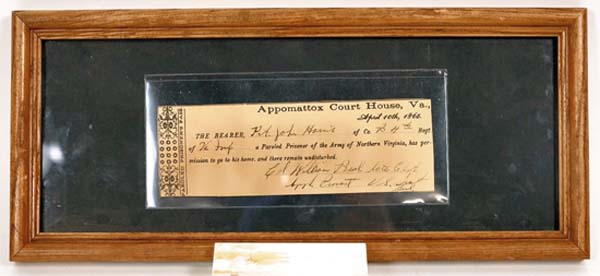 Appomattox Court House, Va.,
April 10th, 1865.
THE BEARER, Pvt. John Harris of Co. B 4th Regt
of Va Inf a Paroled Prisoner of the Army of Northern Virginia, has per-
mission to go to his home, and there remain undisturbed.
Col William